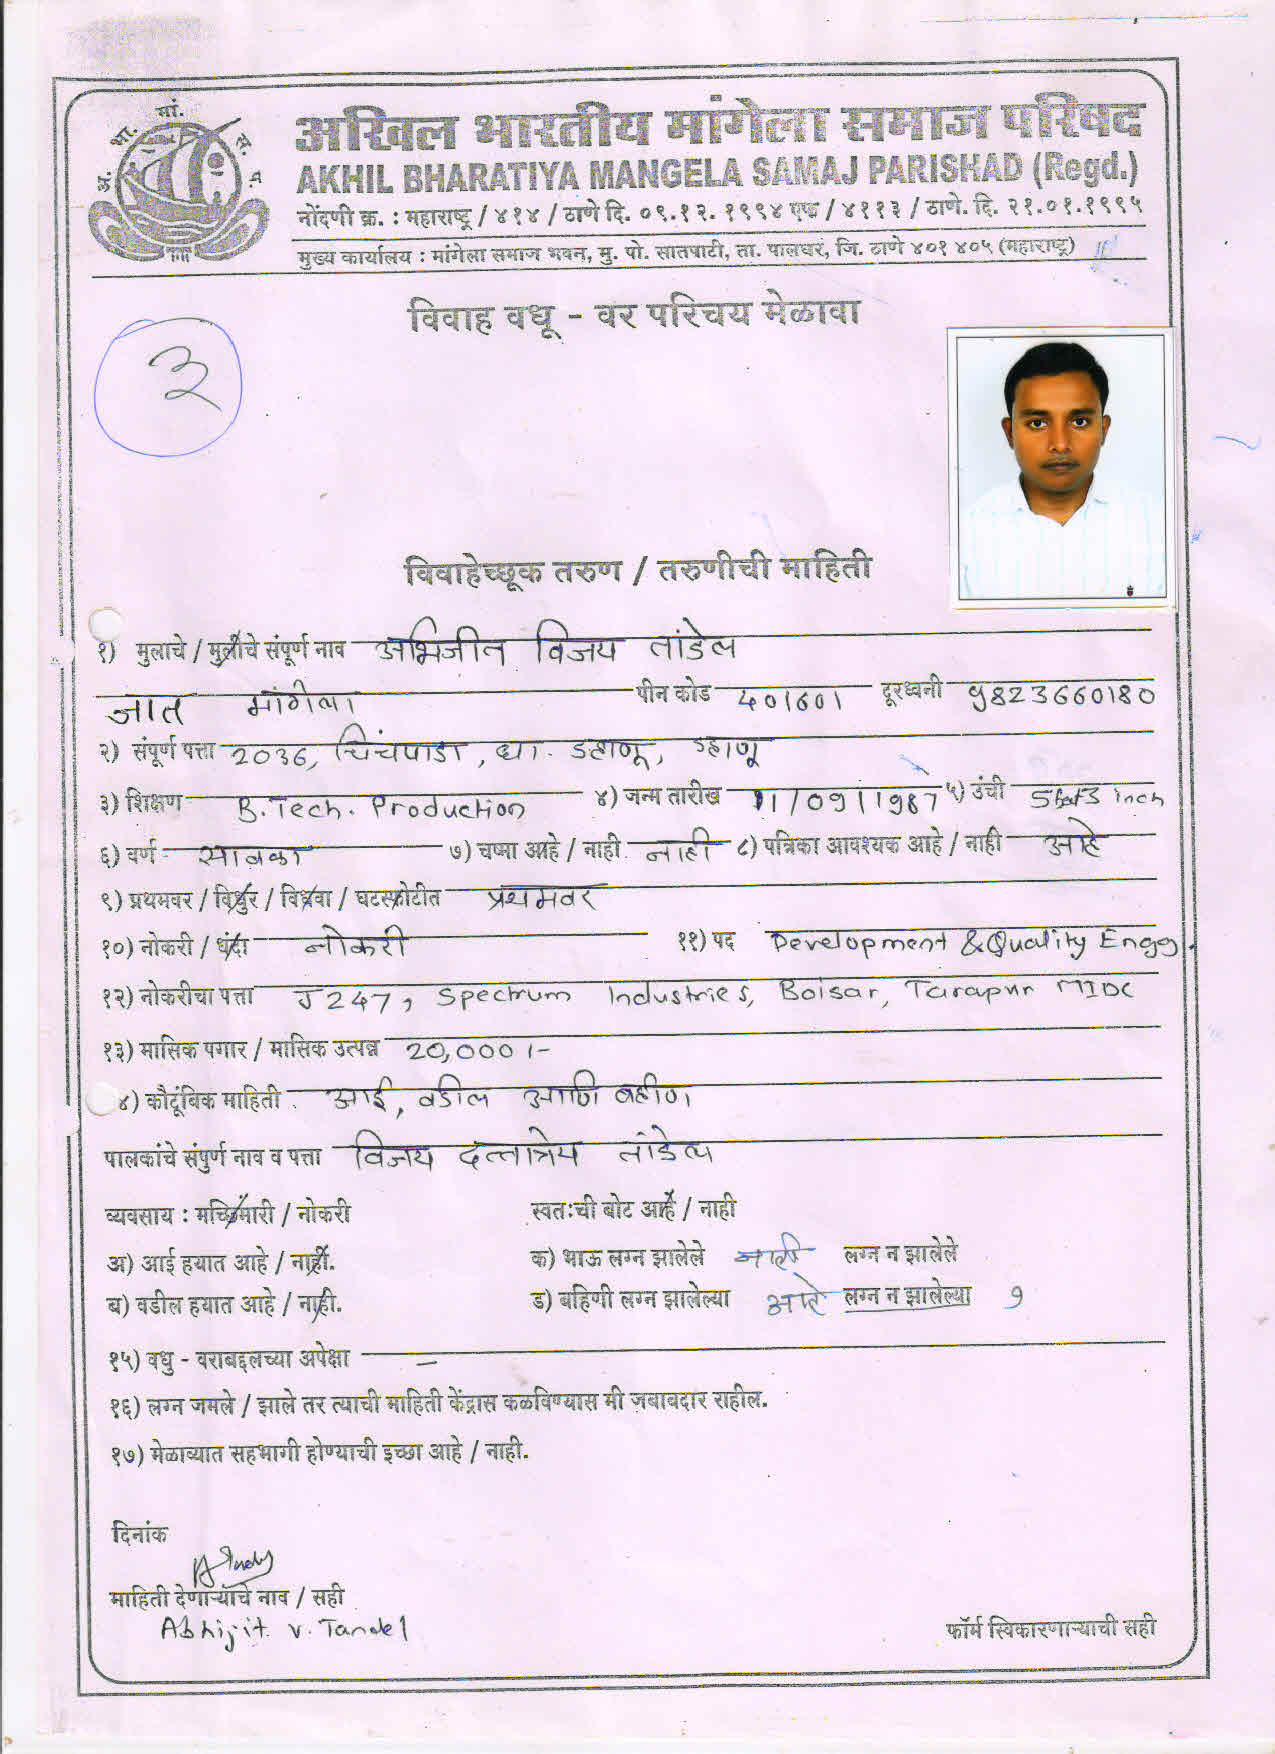 अ. भा. मां. स. प.
अखिल भारतीय मांगेला समाज परिषद
AKHIL BHARATIYA MANGELA SAMAJ PARISHAD (Regd.)
नोंदणी क्र. : महाराष्ट्र / ४१४ / ठाणे दि. ०९.१२.१९९४ एफ / ४११३ / ठाणे. दि. २१.०१.१९९५
मुख्य कार्यालय : मांगेला समाज भवन, मु. पो. सातपाटी, ता. पालघर, जि. ठाणे ४०१ ४०५ (महाराष्ट्र)
विवाह वधू - वर परिचय मेळावा
३
विवाहेच्छूक तरुण / तरुणीची माहिती
१) मुलाचे / मुलीचे संपूर्ण नाव अभिजीत विजय तांडेल
जात मांगेला पीन कोड 401601 दूरध्वनी 9823660180
२) संपूर्ण पत्ता 2036, चिंचपाडा, धा. डहाणू, डहाणू
३) शिक्षण B.Tech. Production ४) जन्म तारीख 11/09/1987 ५) उंची 5 feet 3 inch
६) वर्ण सावळा ७) चष्मा आहे / नाही नाही ८) पत्रिका आवश्यक आहे / नाही आहे
९) प्रथमवर / विधुर / विधवा / घटस्फोटीत प्रथमवर
१०) नोकरी / धंदा नोकरी ११) पद Development & Quality Engg.
१२) नोकरीचा पत्ता J 247, Spectrum Industries, Boisar, Tarapur MIDC
१३) मासिक पगार / मासिक उत्पन्न 20,000/-
४) कौटूंबिक माहिती आई, वडील आणि बहीण
पालकांचे संपुर्ण नाव व पत्ता विजय दत्तात्रेय तांडेल
व्यवसाय : मच्छिमारी / नोकरी स्वतःची बोट आहे / नाही
अ) आई हयात आहे / नाही. क) भाऊ लग्न झालेले नाही लग्न न झालेले
ब) वडील हयात आहे / नाही. ड) बहिणी लग्न झालेल्या आहे लग्न न झालेल्या १
१५) वधु - वराबद्दलच्या अपेक्षा –
१६) लग्न जमले / झाले तर त्याची माहिती केंद्रास कळविण्यास मी जबाबदार राहील.
१७) मेळाव्यात सहभागी होण्याची इच्छा आहे / नाही.
दिनांक
माहिती देणाऱ्याचे नाव / सही
Abhijit. v. Tandel
फॉर्म स्विकारणाऱ्याची सही